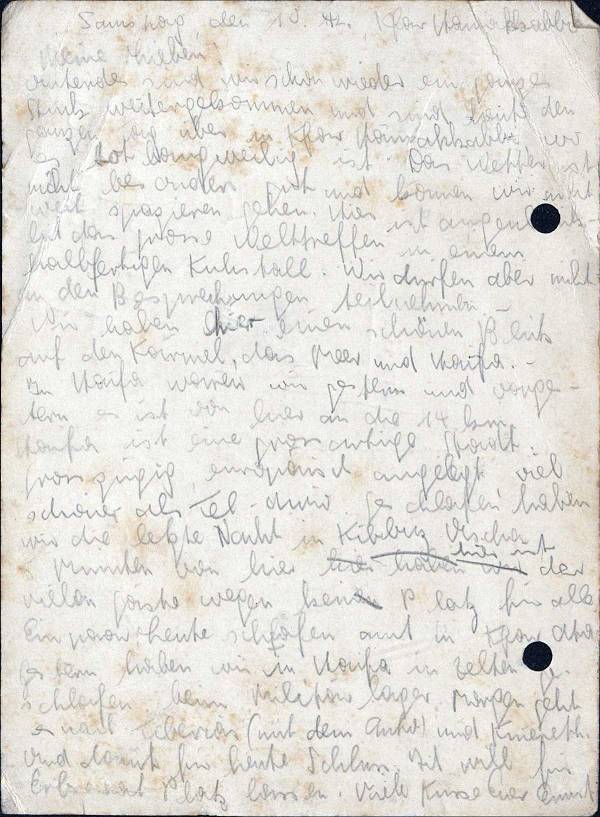 Samstag den 10. 
Meine Lieben!
sind wir schon wieder ein ganzes
Stück weitergekommen und sind heute den
ganzen Tag über in Kfar wo
es tot langweilig ist. Das Wetter ist
nicht besonders gut und können wir nicht
weit spazieren gehen. Hier ist
das grosse Welttreffen in einem
halbfertigen Kuhstall. Wir dürfen aber nicht
an den Besprechungen teilnehmen –
Wir haben hier einen schönen Blick
auf den Karmel, das Meer und Haifa. –
In Haifa waren wir gestern und vorge-
stern es ist von hier an die 14 km
Haifa ist eine grossartige Stadt.
grosszügig, europäisch angelegt viel
schöner als Tel-Aviv geschlafen haben
wir die letzte Nacht in Kibbuz Uscha
5 Minuten von hier hier ist der
vielen Gäste wegen kein Platz für alle
Ein paar heute schlafen auch in Kfar
Gestern haben wir in Haifa in Zelten ge-
schlafen beim Militärlager. Morgen geht
es nach Tiberias (mit dem Auto) und Kinereth.
Und damit für heute Schluss. Ich will für
Platz lassen. Viele Küsse euer